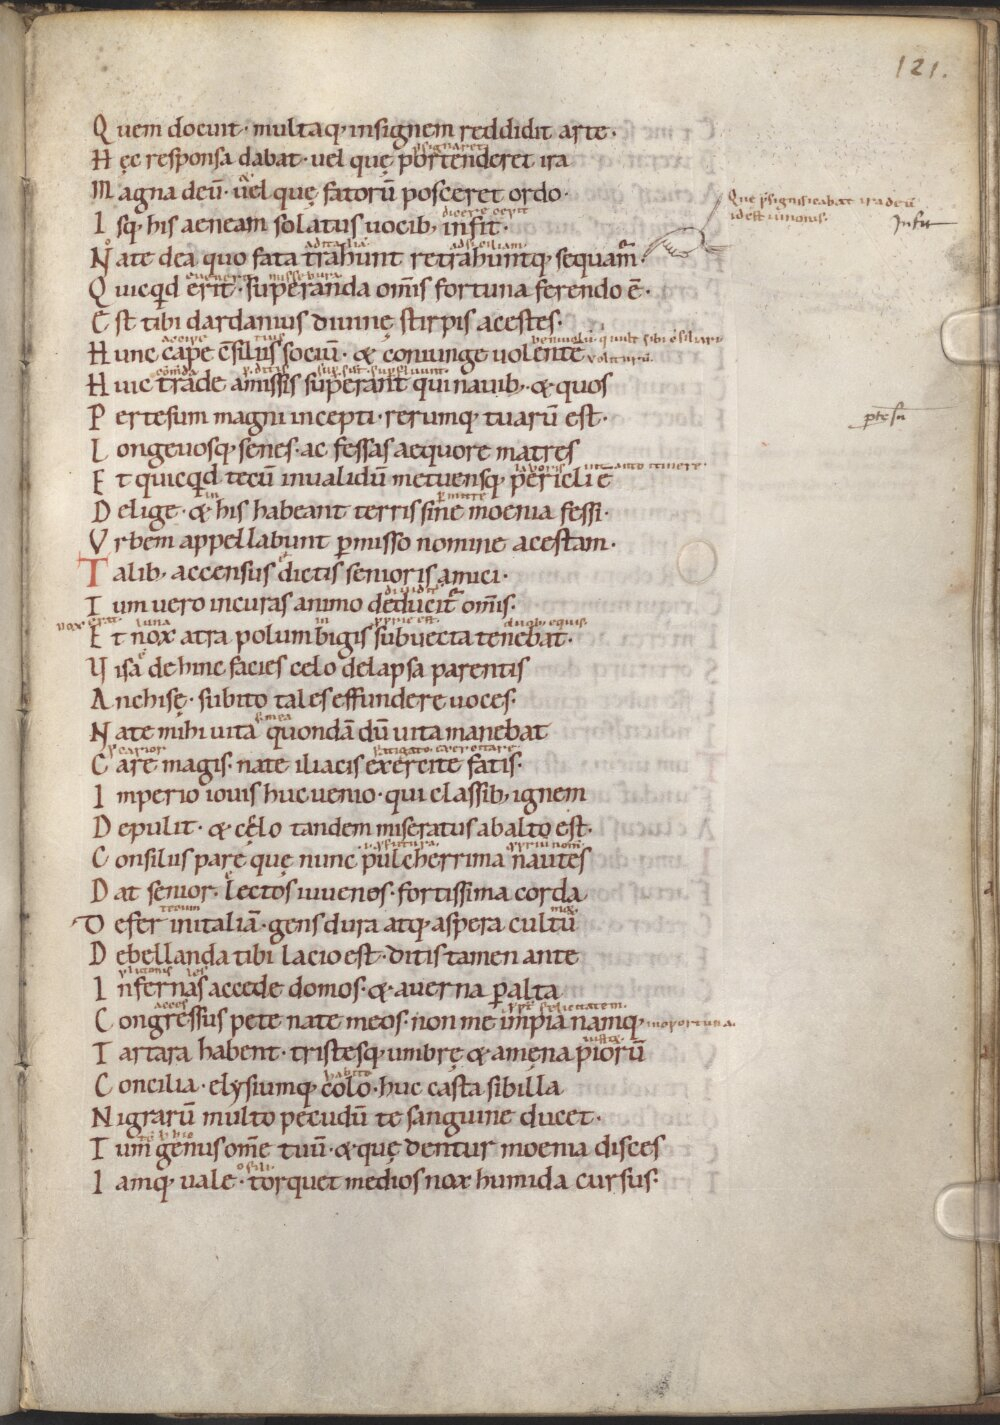 121.
Quem docuit· multaq; insignem reddidit arte·
Hęc responsa dabat· uel quę portenderet ira
Magna deū· uel quę fatorū posceret ordo·
Isq; his aeneam solatus uocib; infit·
Nate dea quo fata trahunt retrahuntq; sequamur·
Quicqd erit· superanda om̄is fortuna ferendo ē·
Est tibi dardanius diuinę stirpis acestes·
Hunc cape c̄siliis sociū· & coniunge uolente
Huic trade amissis superant qui nauib; & quos
Pertesum magni incepti· rerumq; tuarū est·
Longeuosq; senes· ac fessas aequore matres
Et quicqd tecū inualidū metuensq; pericli ē
Delige· & his habeant terris sine moenia fessi·
Vrbem appellabunt pmisso nomine acestam·
Talib; accensus dictis senioris amici·
Tum uero incuras animo deducit om̄is·
Et nox atra polum bigis subuecta tenebat·
Visa dehinc facies celo delapsa parentis
Anchisę· subito tales effundere uoces·
Nate mihi uita quondā dū uita manebat
Care magis· nate iliacis exercite fatis·
Imperio iouis huc uenio· qui classib; ignem
Depulit· & cęlo tandem miseratus ab alto est·
Consiliis pare quę nunc pulcherrima nautes
Dat senior· lectos iuuenes· fortissima corda
Defer initaliā· gens dura atq; aspera cultū
Debellanda tibi lacio est· ditis tamen ante
Infernas accede domos· & auerna palta
Congressus pete nate meos· non me impia namq;
Tartara habent· tristesq; umbrę & amęna piorū
Concilia· elysiumq; colo· huc casta sibilla
Nigrarū multo pecudū te sanguine ducet·
Tum genus om̄e tuū· & quę dentur moenia disces
Iamq; uale· torquet medios nox humida cursus·
Infit